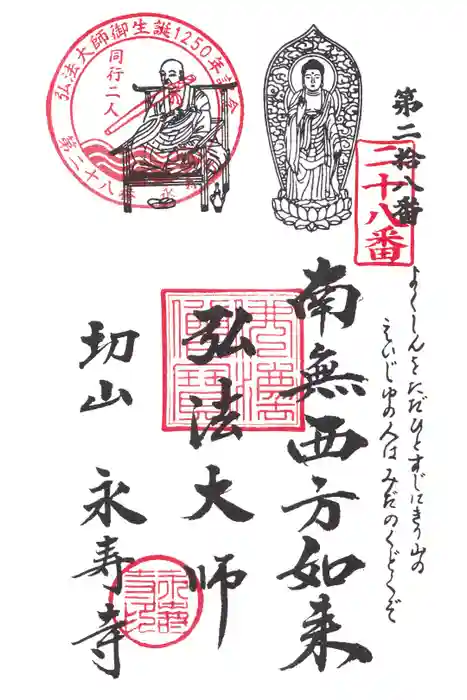 第二拾八番
二十八番
よくしんをただひとすじにきり山の
えいじゆの人はみだのくどくぞ
南無西方如来
弘法大師
切山 永寿寺
弘法大師御生誕1250年記念
同行二人
第二十八番 永